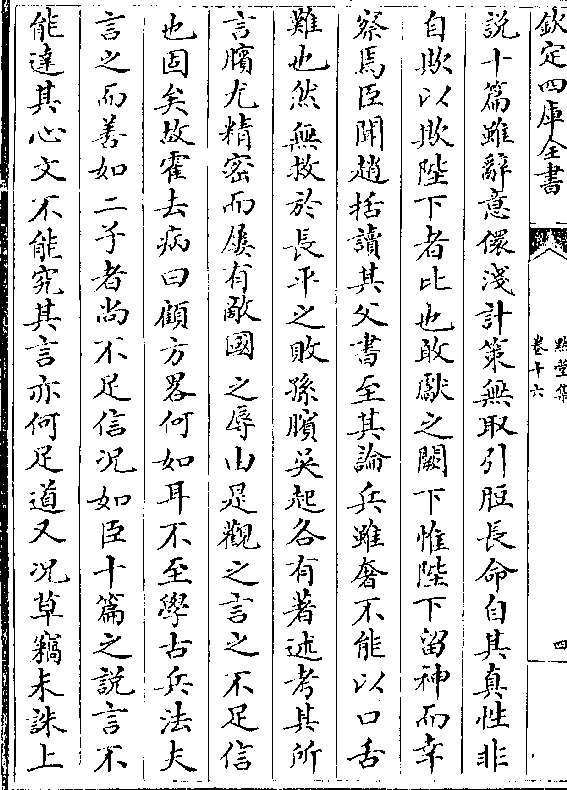 欽定四庫全書
默堂集
卷十六
四
説十篇雖辭意儇淺計策無取引脰長命自其真性非
自欺以欺陛下者比也敢獻之闕下惟陛下留神而幸
察焉臣聞趙括讀其父書至其論兵雖奢不能以口舌
難也然無救於長平之敗孫臏吳起各有著述考其所
言臏尤精密而屢有敵國之辱由是觀之言之不足信
也固矣故霍去病曰顧方畧何如耳不至學古兵法夫
言之而善如二子者尚不足信况如臣十篇之説言不
能達其心文不能究其言亦何足道又况草竊未誅上